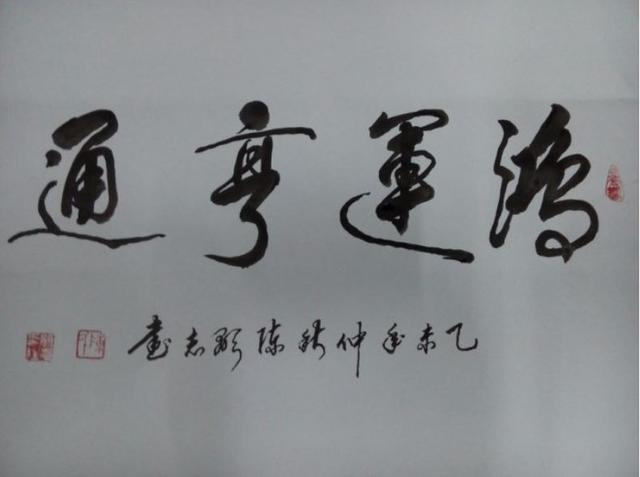 鴻運亨通
乙未年仲秋陈聪志書